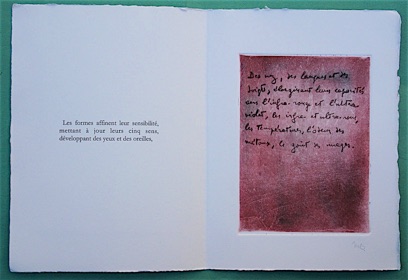 Les formes affinent leur sensibilité,
mettant à jour leurs cinq sens,
développant des yeux et des oreilles,
Des nez, des langues et des
doigts, élargissant leurs capacités
aux l'infra-rouge et l'ultra-
violet, les infras et ultra-sons,
les températures, l'odeur des
métaux, le goût des nuages.